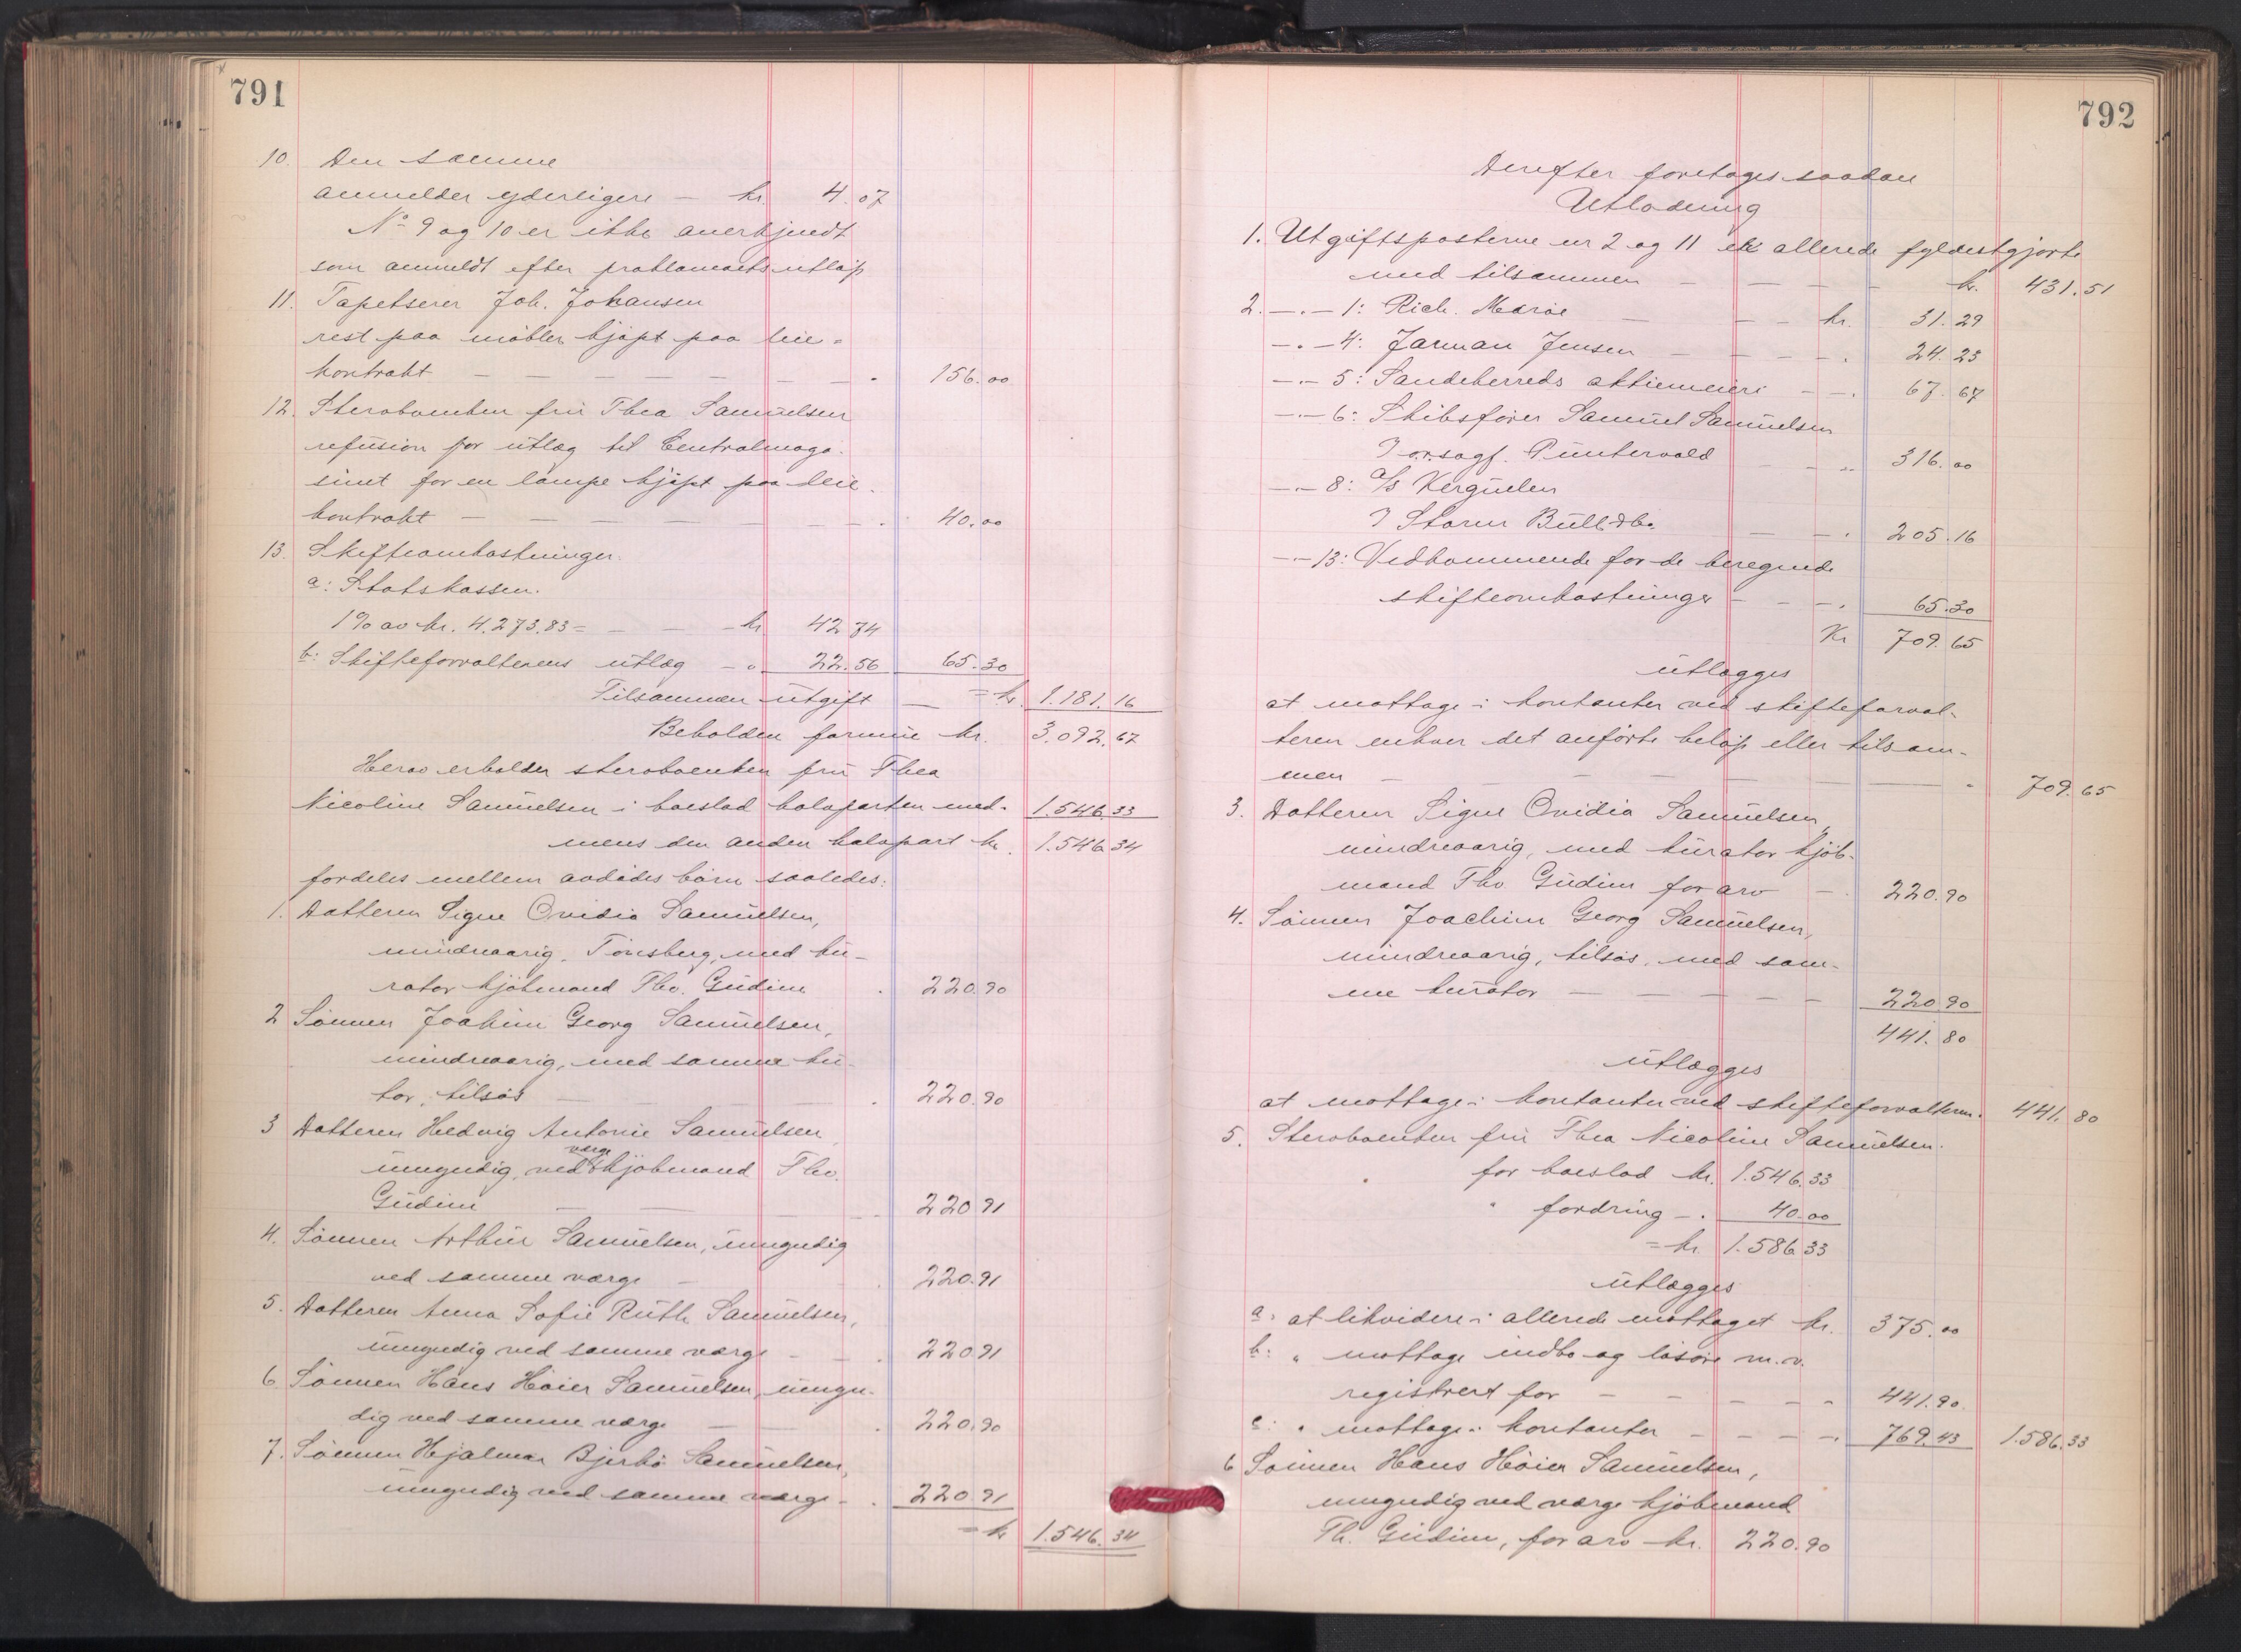 791
10. Den samme
anmelder yderligere - kr. 4.07
No 9 og 10 er ikke anerkjendt
som anmeldt efter proklamaets utløp
11. Tapetserer Joh. Johansen
rest paa møbler kjøpt paa leie-
kontrakt - - - - - - - 156.00
12. Sterboenken fru Thea Samuelsen
refusion for utlæg til Centralmaga-
sinet for en lampe kjøpt paa leie-
kontrakt - - - - - - - 40.00
13. Skifteomkostninger.
a: Statskassen.
1% av kr. 4.273.83 = - - - kr. 42.74
b: Skifteforvalterens utlæg - " 22.56 65.30
Tilsammen utgift - = kr. 1.181.16
Beholden formue kr. 3.092.67
Herav erholder sterboenken fru Thea
Nicoline Samuelsen i boeslod halvparten med. 1.546.33
mens den anden halvpart kr. 1.546.34
fordeles mellem avdødes børn saaledes:
1. Datteren Signe Ovidia Samuelsen,
mindreaarig, Tønsberg, med ku-
rator kjøbmand Tho. Gudim . 220.90
2 Sønnen Joakim Georg Samuelsen,
mindreaarig, med samme ku-
tor, tilsøs - - - . 220.90
3 Datteren Hedvig Antonie Samuelsen,
værge
umyndig, ved kjøbmand Tho.
Gudim - - - - 220.91
4. Sønnen Arthur Samuelsen, umyndig
ved samme værge - . 220.91
5. Datteren Anna Sofie Ruth Samuelsen,
umyndig ved samme værge - - . 220.91
6 Sønnen Hans Høier Samuelsen, umyn-
dig ved samme værge - - . 220.90
7. Sønnen Hjalmar Bjerkø Samuelsen,
umyndig ved samme værge - . 220.91
= kr. 1.546.34
792
Derefter foretages saadan
Utlodning
1. Utgiftsposterne nr 2 og 11 er allerede fyldestgjorte
med tilsammen - - - - kr. 431.51
2. -.- 1: Rich. Marøe - - - kr. 31.29
-.- 4: Jarman Jensen - - - - . 24.23
-.- 5: Sandeherreds aktiemeieri - - . 67.67
-.- 6: Skibsfører Samuel Samuelsen
o.r.sagf. Puntervold - - " 316.00
-.- 8: a/s Kerguelen
Storm Bull & Co - - . 205.16
-.- 13: Vedkommende for de beregnede
skifteomkostninger - - - . 65.30
Kr 709.65
utlægges
at mottage i kontanter ved skifteforval-
teren enhver det anførte beløp eller tilsam-
men - - - - - - . 709.65
3. Datteren Signe Ovidia Samuelsen,
mindreaarig, med kurator kjøb-
mand Tho. Gudim for arv - . 220.90
4. Sønnen Joachim Georg Samuelsen,
mindreaarig, tilsøs, med sam-
me kurator - - - - - 220.90
441.80
utlægges
at mottage i kontanter ved skifteforvalteren . 441.80
5. Sterboenken fru Thea Nicoline Samuelsen.
for boeslod kr. 1.546.33
" fordring - . 40.00
= kr. 1.586.33
utlægges
a: at likvidere i allerede mottaget kr. 375.00
b: " mottage indbo og løsøre m.v.
registrert for - - - - 441.90.
c: " mottage i kontanter - - - - . 769.43 1.586.33
6 Sønnen Hans Høier Samuelsen,
umyndig ved værge kjøbmand
Th. Gudim, for arv kr. 220.90